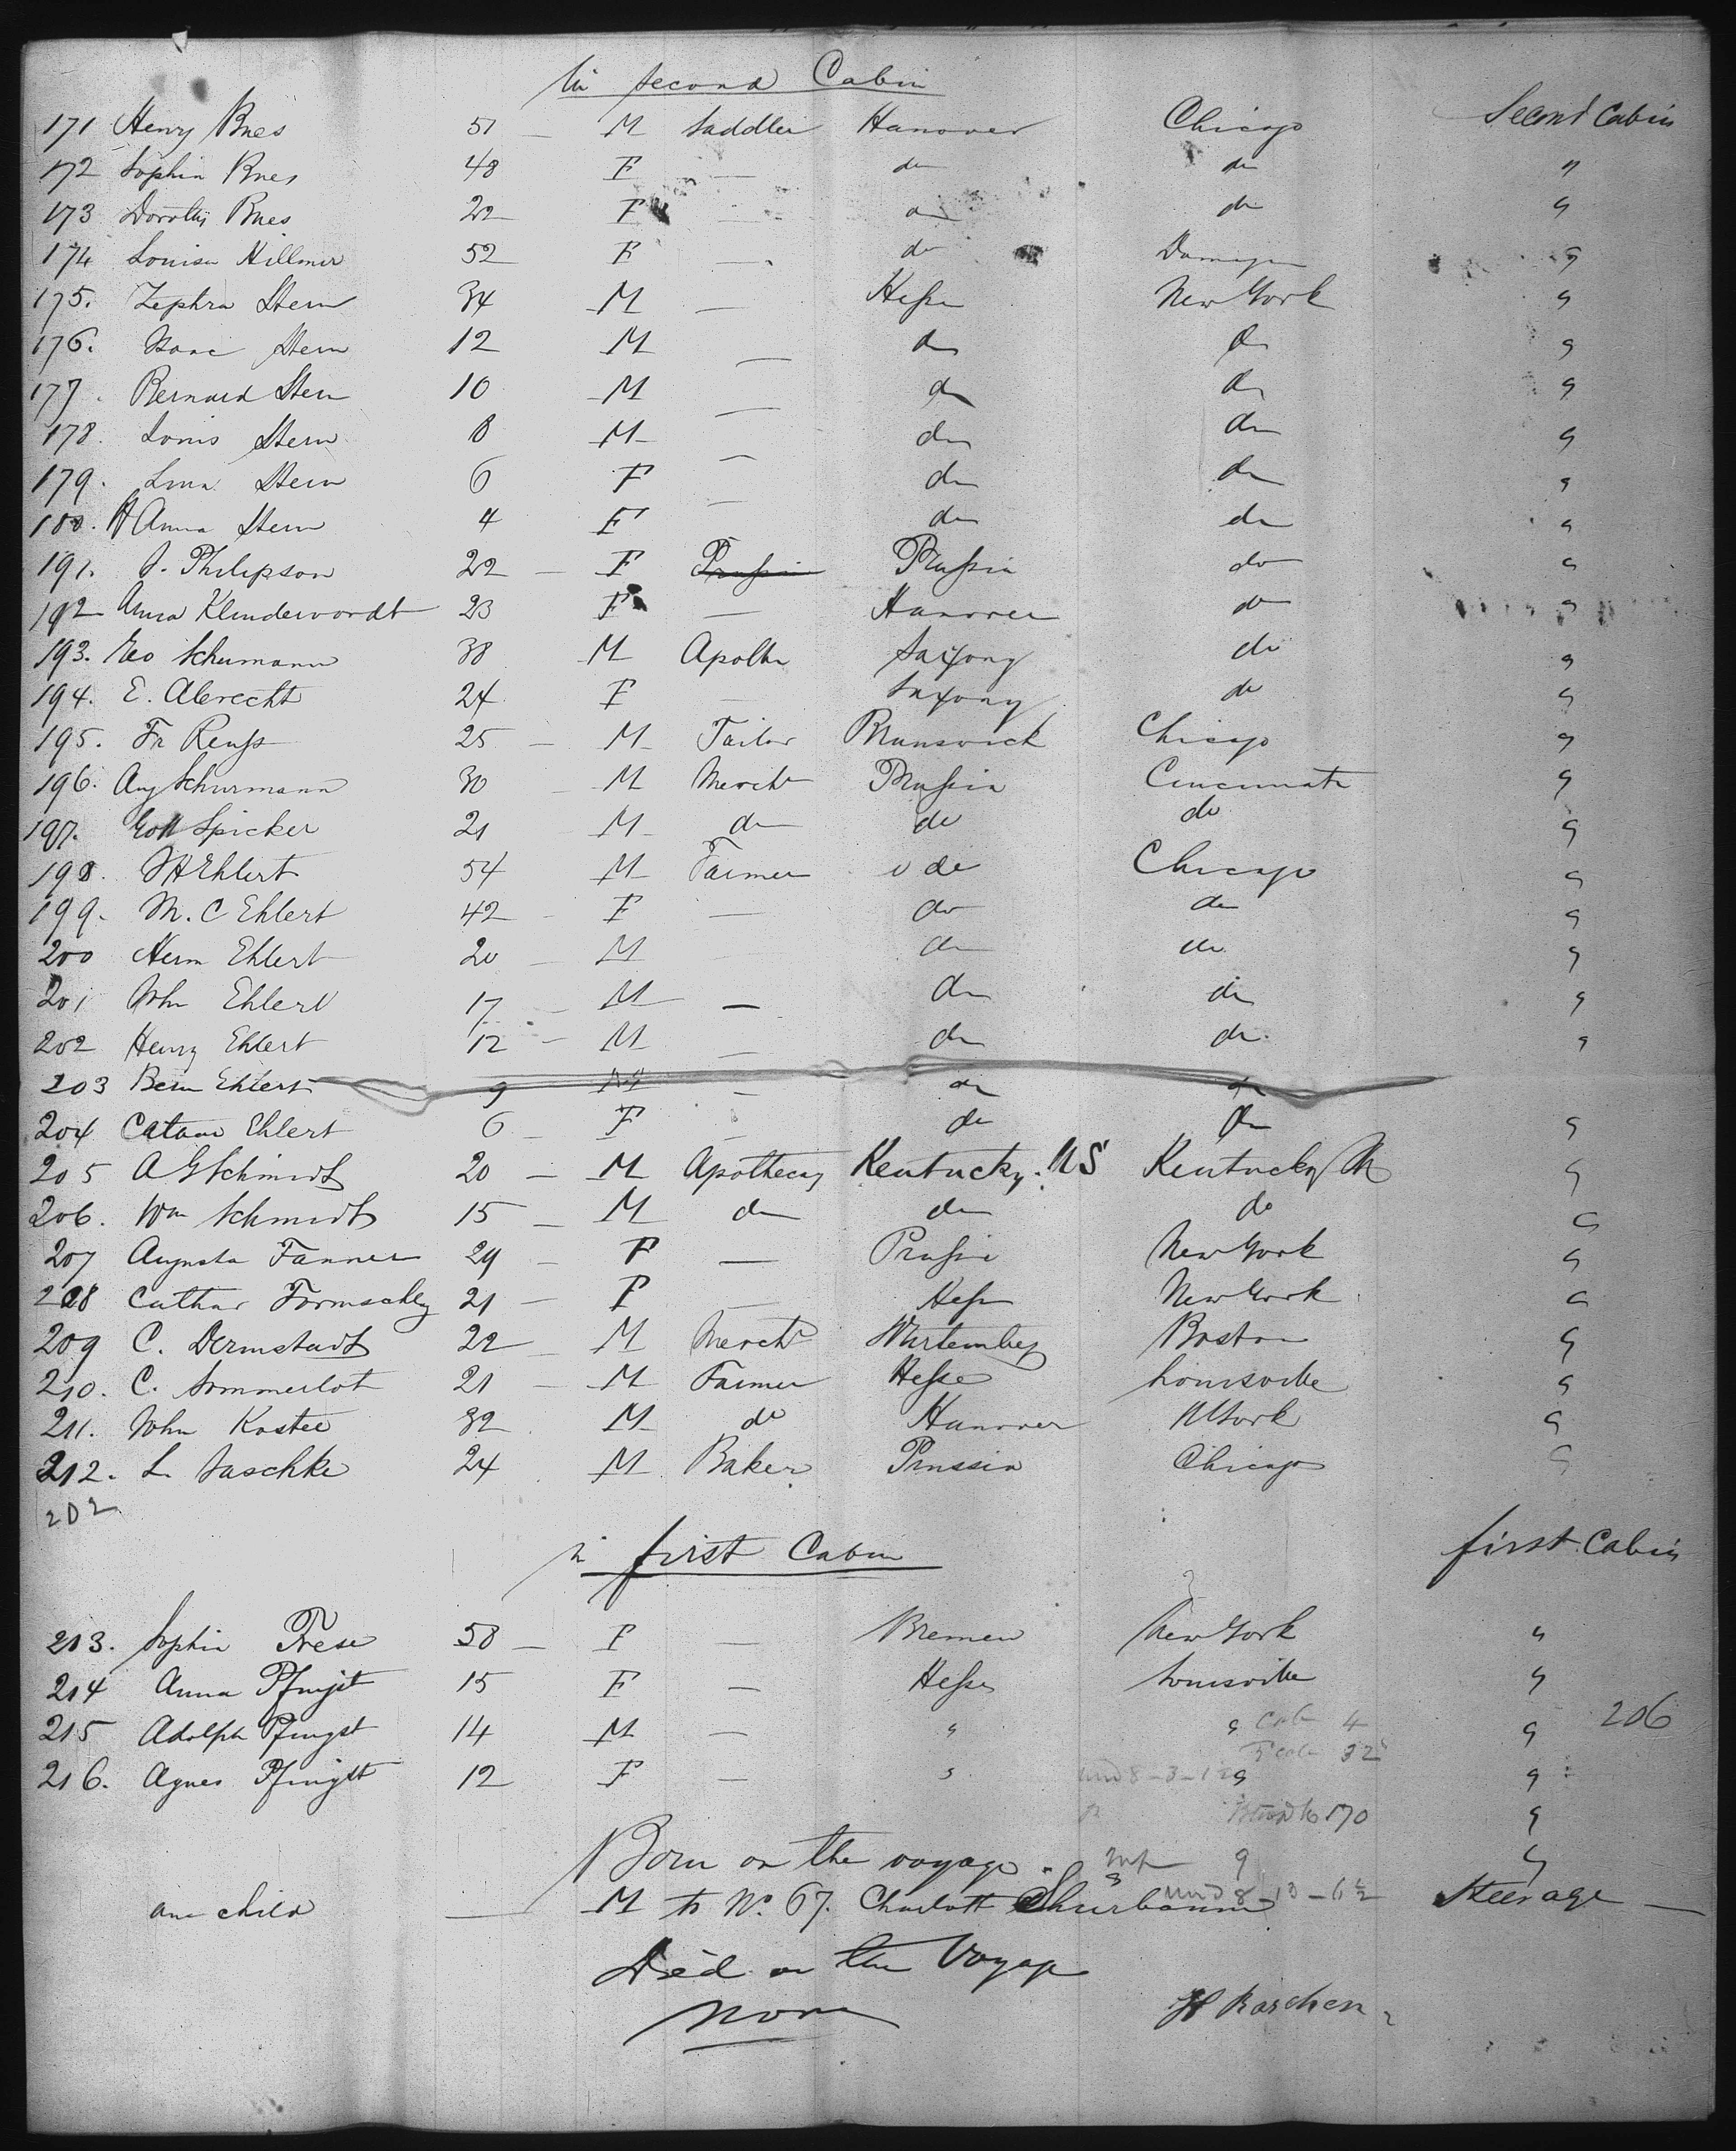 In second Cabin
171 Henry Bues 51 — M Saddler Hanover Chicago Second Cabin
172 Sophia Bues 48 F — do do "
173 Doroth Bues 22 F — do do "
174 Louisa Hillmer 52 F — do "
175. Zephra Stern 34 M — Hesse New York "
176. Isaac Stern 12 M — do do "
177. Bernard Stern 10 M — do do "
178. Louis Stern 8 M — do do "
179. Lina Stern 6 F — do do "
180. H Anna Stern 4 F — do do "
191. J. Philipson 22 — F Prussia Prussia do "
192 Anna Klindervordt 23 F — Hanover do "
193. Geo Schumann 38 M Apothe Saxony do "
194. E. Albrecht 24 F — Saxony do "
195. Fr Reuss 25 — M Tailor Brunswick Chicago "
196. Aug Schurmann 30 — M Mercht Prussia Cincinnati "
197. Gott Spicker 21 M do do do "
198. Ehlert 54 M Farmer do Chicago "
199. M. C Ehlert 42 — F — do do "
200 Herm Ehlert 20 — M do do "
201 John Ehlert 17 — M — do do "
202 Henry Ehlert 12 — M — do do "
203 Bern Ehlert 9 M — do do
204 Catani Ehlert 6 — F — do do "
205 A G Schmidt 20 — M Apothecary Kentucky. US Kentucky "
206. Wm Schmidt 15 — M do do do "
207 Augusta Fanner 29 — F — Prussia New York "
208 Cathar Formschlg 21 — F — Hesse New York "
209 C. Dermstadt 22 — M Mercht Wurtemberg Boston "
210. C. Sommerlot 21 — M Farmer Hesse Louisville "
211. John Kostee 32 M do Hanover N York "
212. L. Jaschke 24 M Baker Prussia Chicago "
202
in first Cabin first Cabin
213. Sophia Frese 58 — F — Bremen New York "
214 Anna Pfingst 15 F — Hesse Louisville "
215 Adolph Pfingst 14 M — " " Cab 4 " 206
2 cab 32
216. Agnes Pfingst 12 F — " und 8 - 3 - 1 " "
170 "
Born on the voyage. Inf 9 "
one child — M to No. 67. Charlott Shurbaum und 8 - 13 - 6 Steerage —
Died on the Voyage
None H Raschen